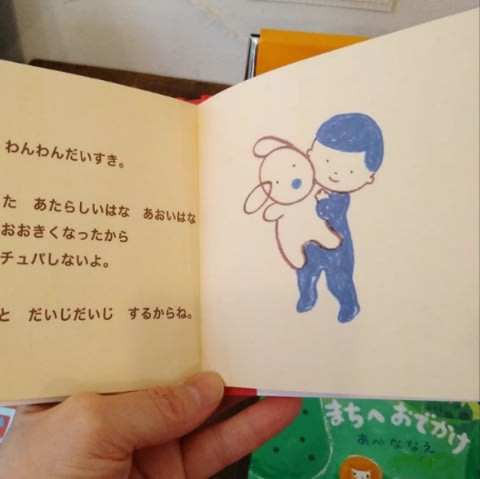 わんわんだいすき。
た　あたらしいはな　あおいはな
おおきくなったから
チュパしないよ。
と　だいじだいじ　するからね。
まちへ おでかけ
あべ ななえ